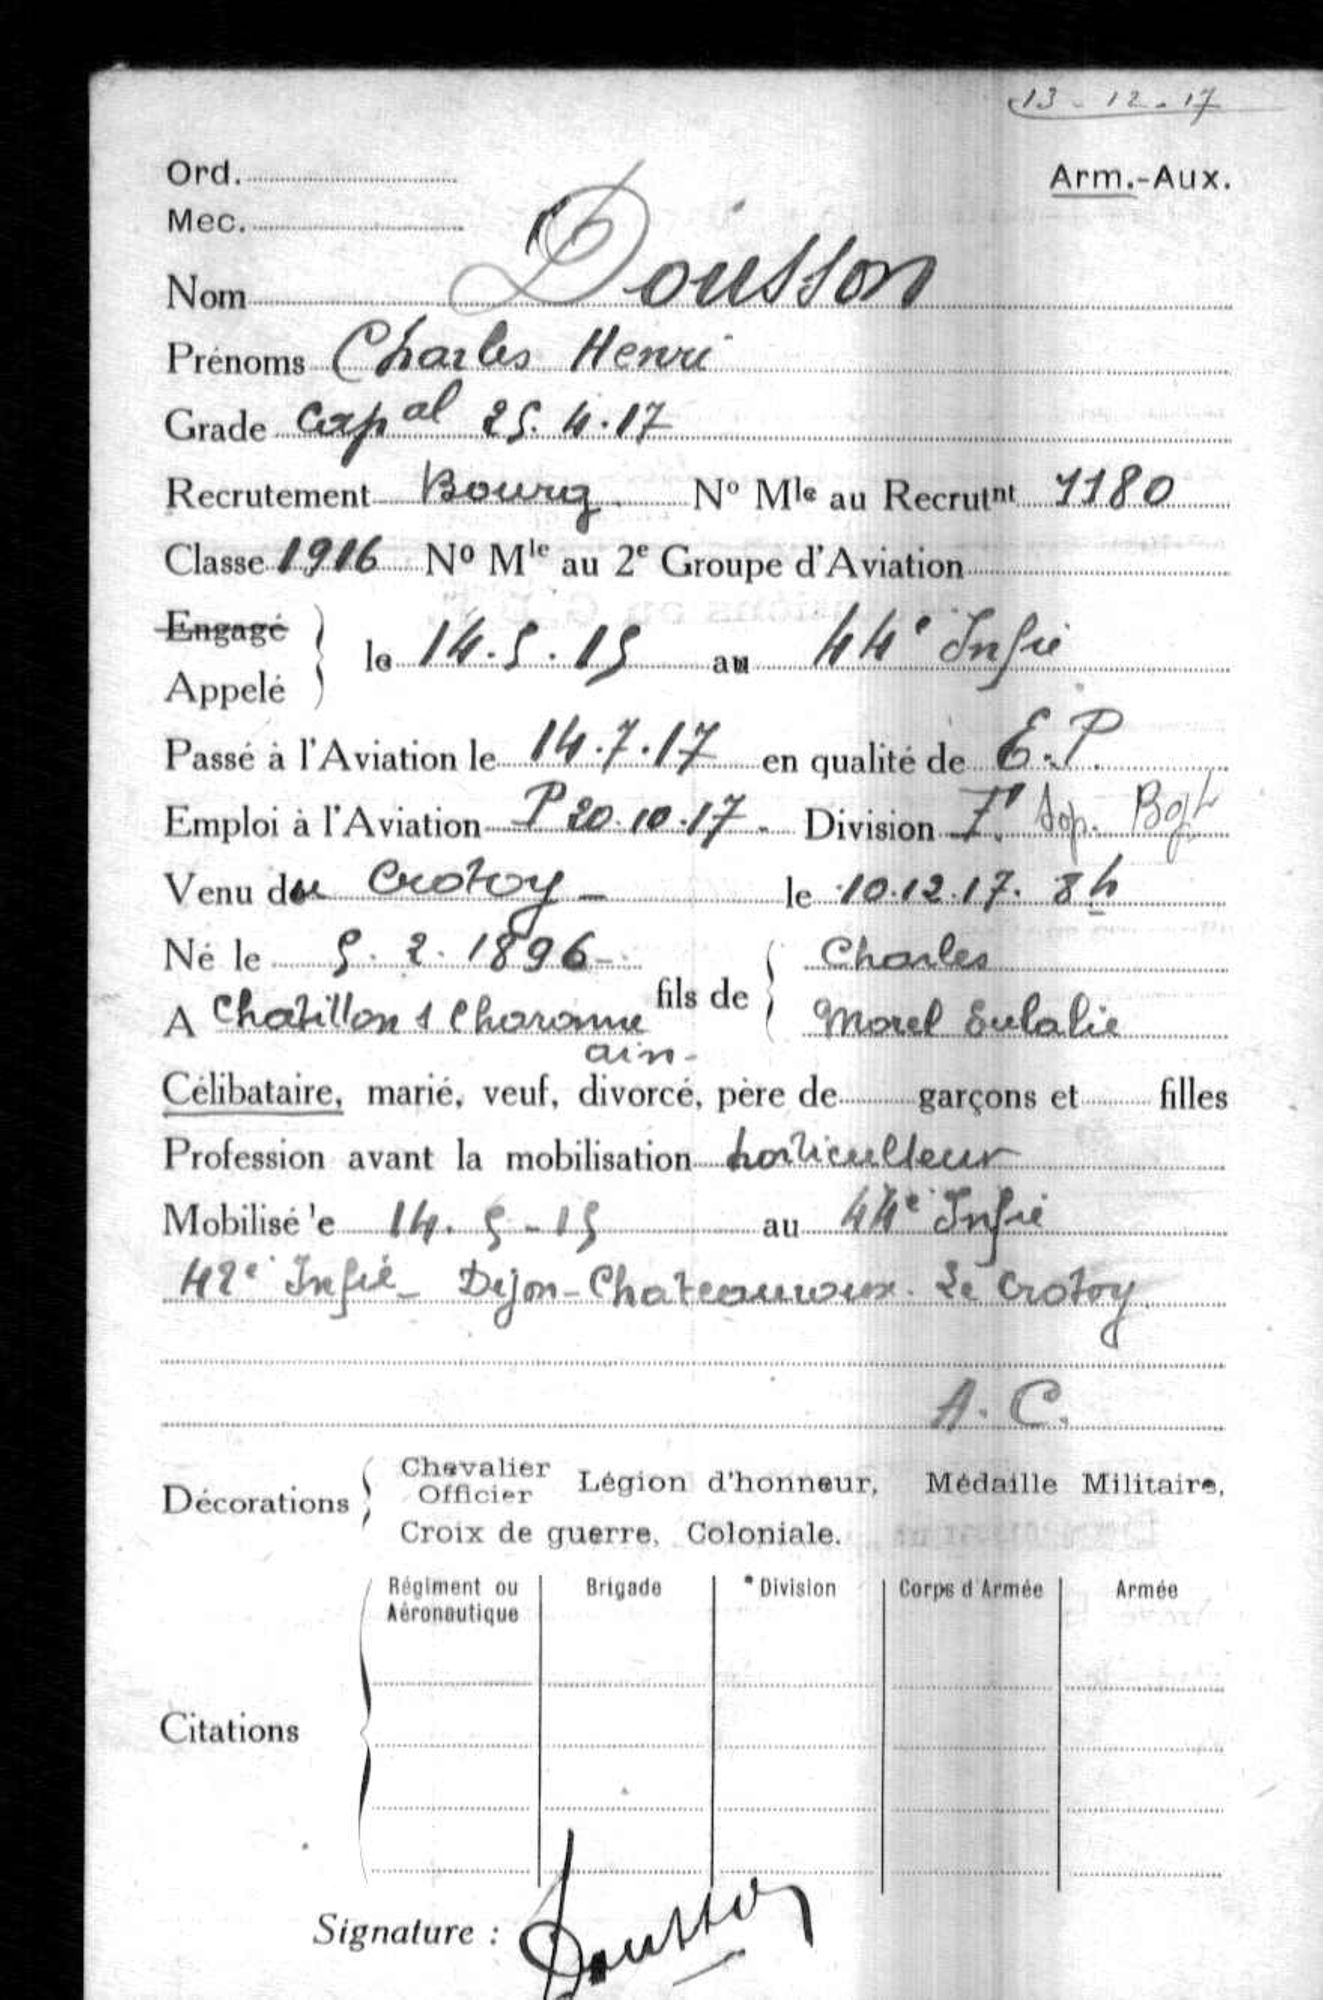 13-12-17
Ord.
Arm.-Aux.
Mec.
Nom Dousson
Prénoms Charles Henri
Grade Capal 25.4.17
Recrutement Bourg. No Mle au Recrutnt 1180
Classe 1916 No Mle au 2e Groupe d'Aviation
Engagé
Appelé
le 14.5.15 au 44e Infie
Passé à l'Aviation le 14.7.17 en qualité de E.P.
Emploi à l'Aviation P 20.10.17. Division Sop.
Venu du Crotoy - le 10.12.17. 8h
Né le 5.2.1896- fils de Charles
A Chatillon s Charonne Morel Eulalie
ain-
Célibataire, marié, veuf, divorcé, père de garçons et filles
Profession avant la mobilisation horticulteur
Mobilisé le 14.5-15 au 44e Infie
42e Infie - Dijon - Chateauroux. Le Crotoy.
A.C.
Décorations Chevalier Officier Légion d'honneur, Médaille Militaire,
Croix de guerre, Coloniale.
Citations
Régiment ou Aéronautique Brigade Division Corps d'Armée Armée
Signature : Dousson